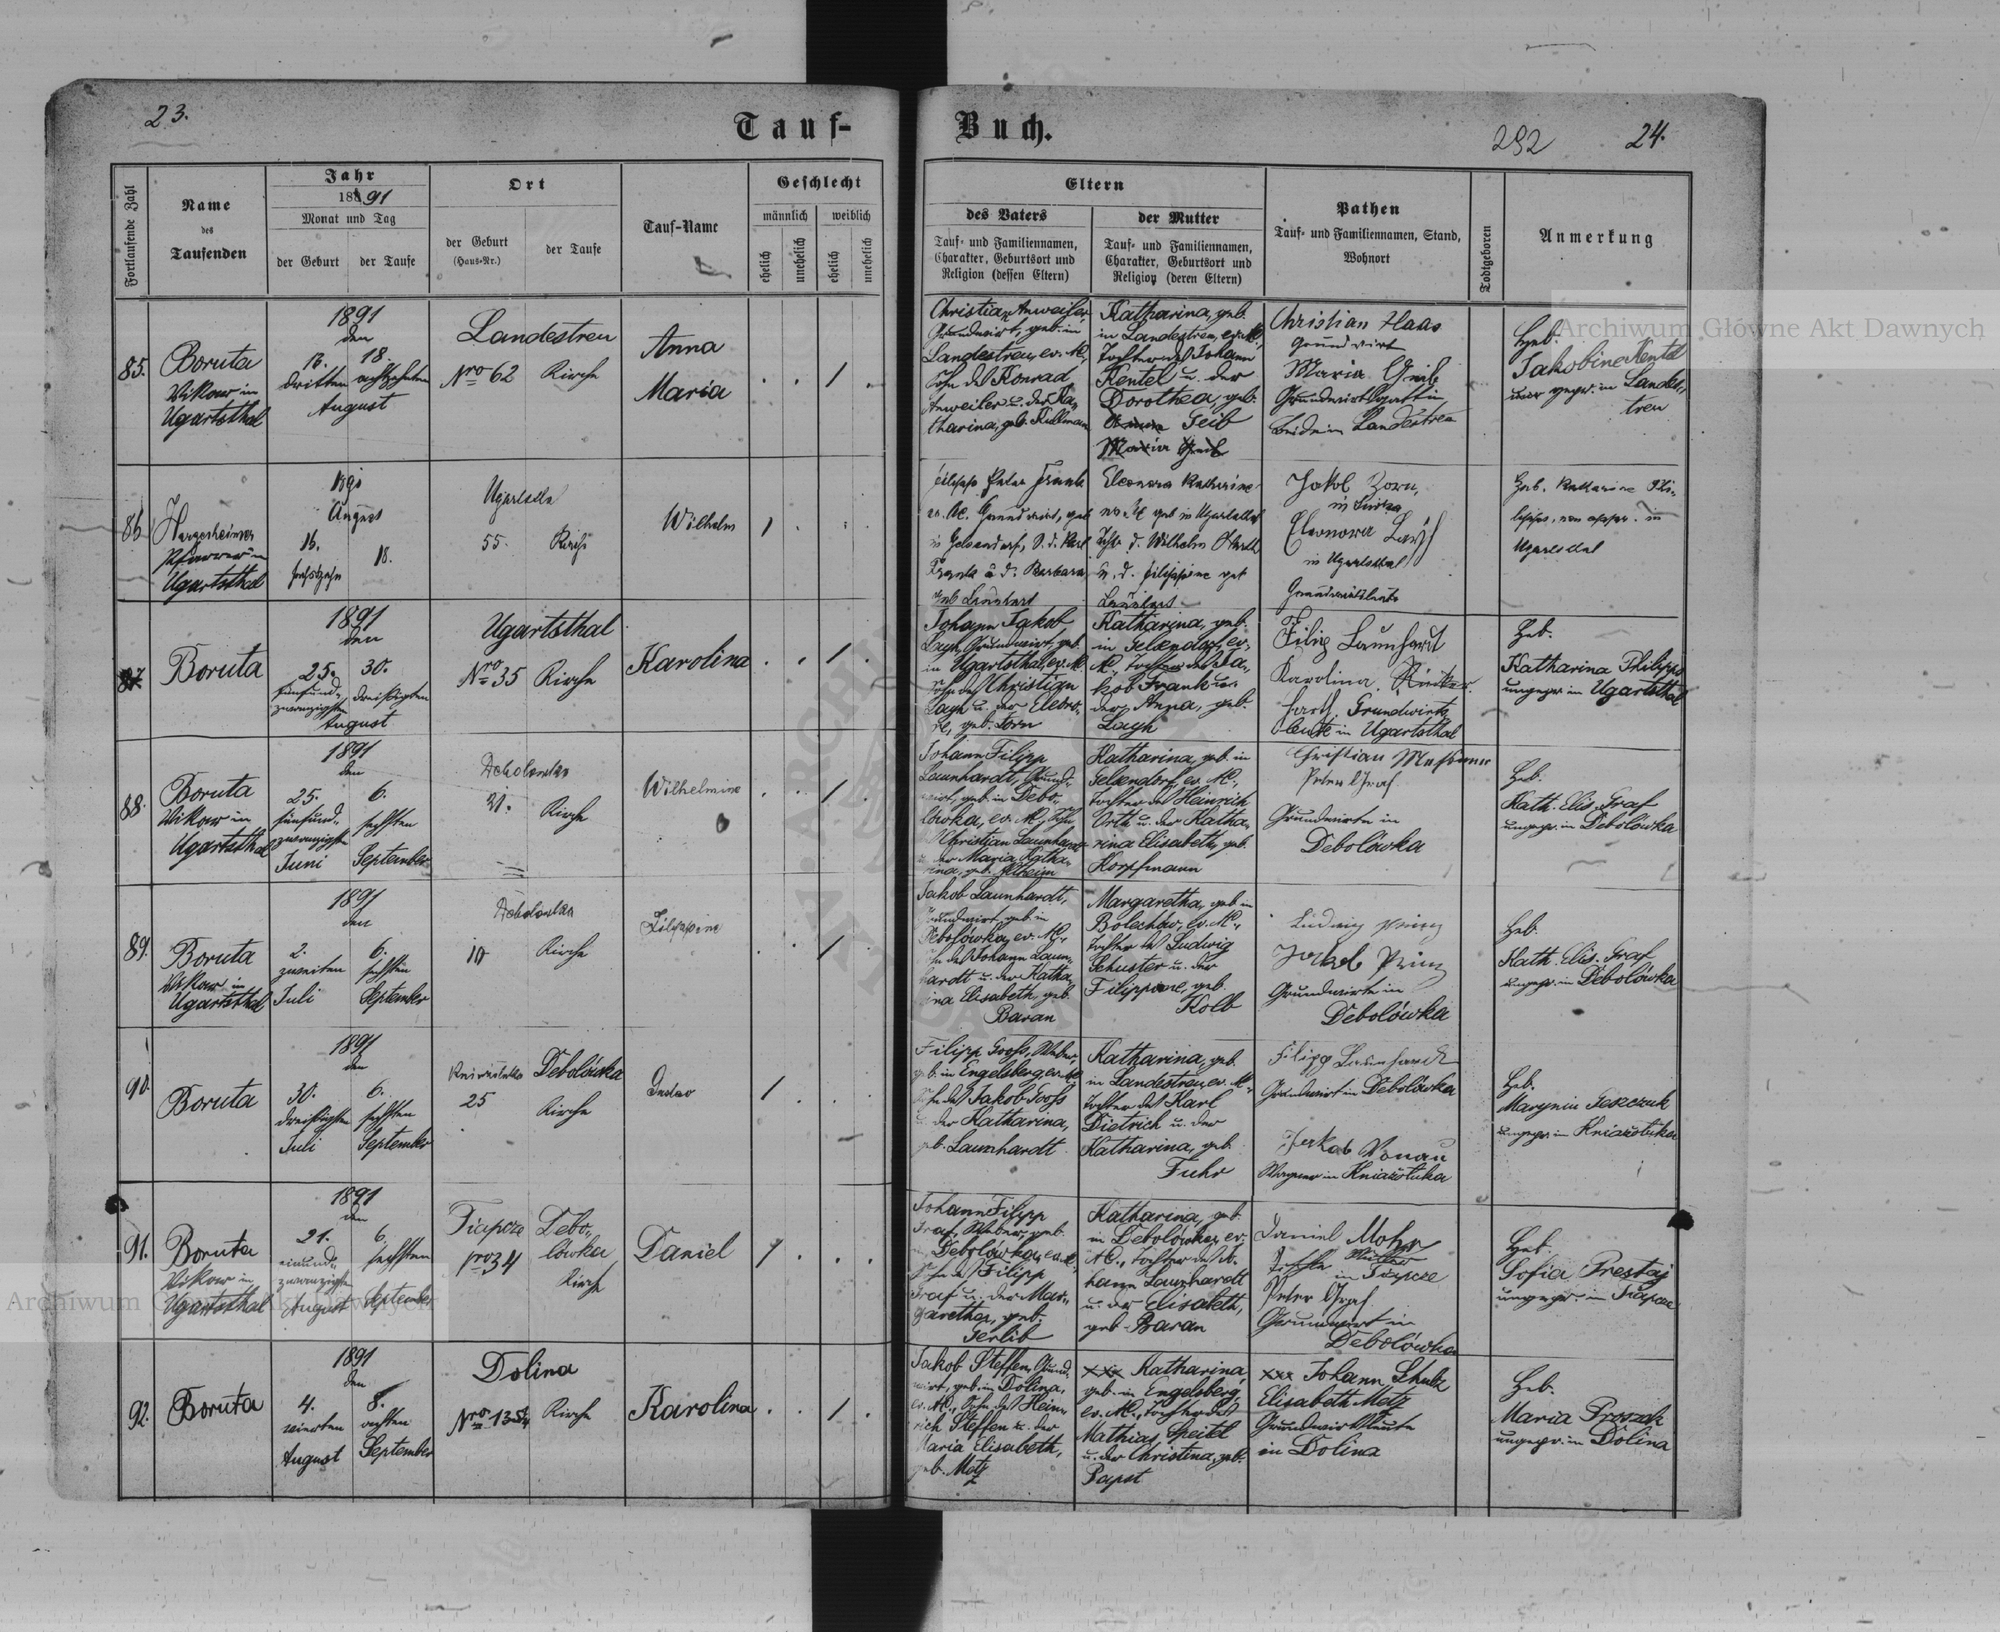 23.
Tauf-
Buch.
292
24.
Fortlaufende Zahl
Name
des
Taufenden
Jahr
1891
Monat und Tag
der Geburt
der Taufe
Ort
der Geburt
(Haus-Nr.)
der Taufe
Tauf-Name
Geschlecht
männlich
weiblich
ehelich
unehelich
ehelich
unehelich
Eltern
des Vaters
Tauf- und Familiennamen,
Charakter, Geburtsort und
Religion (dessen Eltern)
der Mutter
Tauf- und Familiennamen,
Charakter, Geburtsort und
Religion (deren Eltern)
Pathen
Tauf- und Familiennamen, Stand,
Wohnort
Todtgeboren
Anmerkung
85.
Boruta
Vikar in
Ugartsthal
1891
den
18.
dritten achtzehnten
August
Landestreu
Nro 62
Kirche
Anna
Maria
Christian Anweiler,
Grundwirt, geb. in
Landestreu, ev. AC.,
Sohn des Konrad
Anweiler u. der Ka-
tharina, geb. Kullmann
Katharina, geb.
in Landestreu, ev. AC.,
Tochter des Johann
Kentel u. der
Dorothea, geb.
Geib
Maria Geib
Christian Haas
Grundwirt
Maria Geib
Grundwirtsgattin
beide in Landestreu
Heb.
Jakobine Kentel
ungepr. in Landes-
treu
86
Hargesheimer
Pfarrer in
Ugartsthal
August
16.
sechszehn
18.
55.
Kirche
Wilhelm
Peter Frank
Grundwirt, geb
in Gelsendorf, S. d. Karl
Frank u d. Barbara
geb Launhart
Eleonora Katharine
ev. AC geb in Ugartsthal
Tocht. d. Wilhelm
u. d. Filippine geb
Jakob Zorn,
Eleonora
in Ugartsthal
Grundwirtsleute
Heb. Katharine Phi-
in
Ugartsthal
87.
Boruta
1891
den
25.
30.
fünfund-
zwanzigsten
dreißigsten
August
Ugartsthal
Nro 35
Kirche
Karolina
Johann Jakob
Layh, Grundwirt, geb.
in Ugartsthal, ev. AC.
Sohn des Christian
Layh u. der Eleono-
re, geb. Zorn
Katharina, geb.
in Gelsendorf, ev.
AC., Tochter des Ja-
kob Frank u.
der Anna, geb.
Layh
Filip Launhardt
Karolina
Grundwirts
leute in Ugartsthal
Heb.
Katharina Philipps
ungepr. in Ugartsthal
88.
Boruta
Vikar in
Ugartsthal
1891
den
25.
6.
fünfund-
zwanzigsten
sechsten
Juni
September
Debolowka
21.
Kirche
Wilhelmine
Johann Filipp
Launhardt, Grund-
wirt, geb. in Debo-
lówka, ev. AC., Sohn
Christian Launhardt
u. der Maria Katha-
rina, geb. Altheim
Katharina, geb. in
Gelsendorf, ev. AC.,
Tochter des Heinrich
Orth u. der Katha-
rina Elisabeth, geb.
Hopfmann
Christian
Peter Graf
Grundwirte in
Debolówka
Heb.
Kath. Elis. Graf
ungepr. in Debolówka
89.
Boruta
Vikar in
Ugartsthal
1891
den
2.
6.
zweiten
sechsten
Juli
September
Debolowka
10
Kirche
Filippine
Jakob Launhardt,
Grundwirt, geb. in
Debolówka, ev. AC.,
Sohn des Johann Laun-
hardt u. der Katha
rina Elisabeth, geb.
Baran
Margaretha, geb. in
Bolechów, ev. AC.,
Tochter des Ludwig
Schuster u. der
Filippine, geb.
Kolb
Ludwig Prinz
Jakob Prinz
Grundwirte in
Debolówka
Heb.
Kath. Elis. Graf
ungepr. in Debolówka
90.
Boruta
1891
den
30.
6.
dreißigsten
sechsten
Juli
September
25
Debolówka
Kirche
Filipp Gross, Weber,
geb. in Engelsberg, ev. AC.
Sohn des Jakob Gross
u. der Katharina,
geb. Launhardt
Katharina, geb.
in Landestreu, ev. AC.,
Tochter des Karl
Dietrich u. der
Katharina, geb.
Fuhr
Filipp Launhardt
Grundwirt in Debolówka
Jakob Vonau
Wagner in Kniażołuka
Heb.
ungepr. in Kniażołuka
91.
Boruta
Vikar in
Ugartsthal
1891
den
21.
6.
einund-
zwanzigsten
sechsten
August
September
Tiapcze
Nro 34
Debo-
lówka
Kirche
Daniel
Johann Filipp
Graf, Weber, geb.
in Debolówka, ev. AC.,
Sohn des Filipp
Graf u. der Mar-
garetha, geb.
Gerlib
Katharina, geb.
in Debolówka, ev.
AC., Tochter des Jo-
hann Launhardt
u. der Elisabeth,
geb. Baran
Daniel Mohr
in Tiapcze
Peter Graf
Grundwirt in
Debolówka
Heb.
Sofia Prestaj
ungepr. in Tiapcze
92.
Boruta
1891
den
4.
8.
vierten
achten
August
September
Dolina
Kirche
Karolina
Jakob Steffen, Grund-
wirt, geb. in Dolina,
ev. AC., Sohn des Hein-
rich Steffen u. der
Maria Elisabeth,
geb. Metz
xxx Katharina,
geb. in Engelsberg,
ev. AC., Tochter des
Mathias Speitel
u. der Christina, geb.
Papst
xxx Johann Schulz
Elisabeth Metz
Grundwirtsleute
in Dolina
Heb.
Maria Proszak
ungepr. in Dolina
Archiwum Główne Akt Dawnych
Archiwum Główne Akt Dawnych